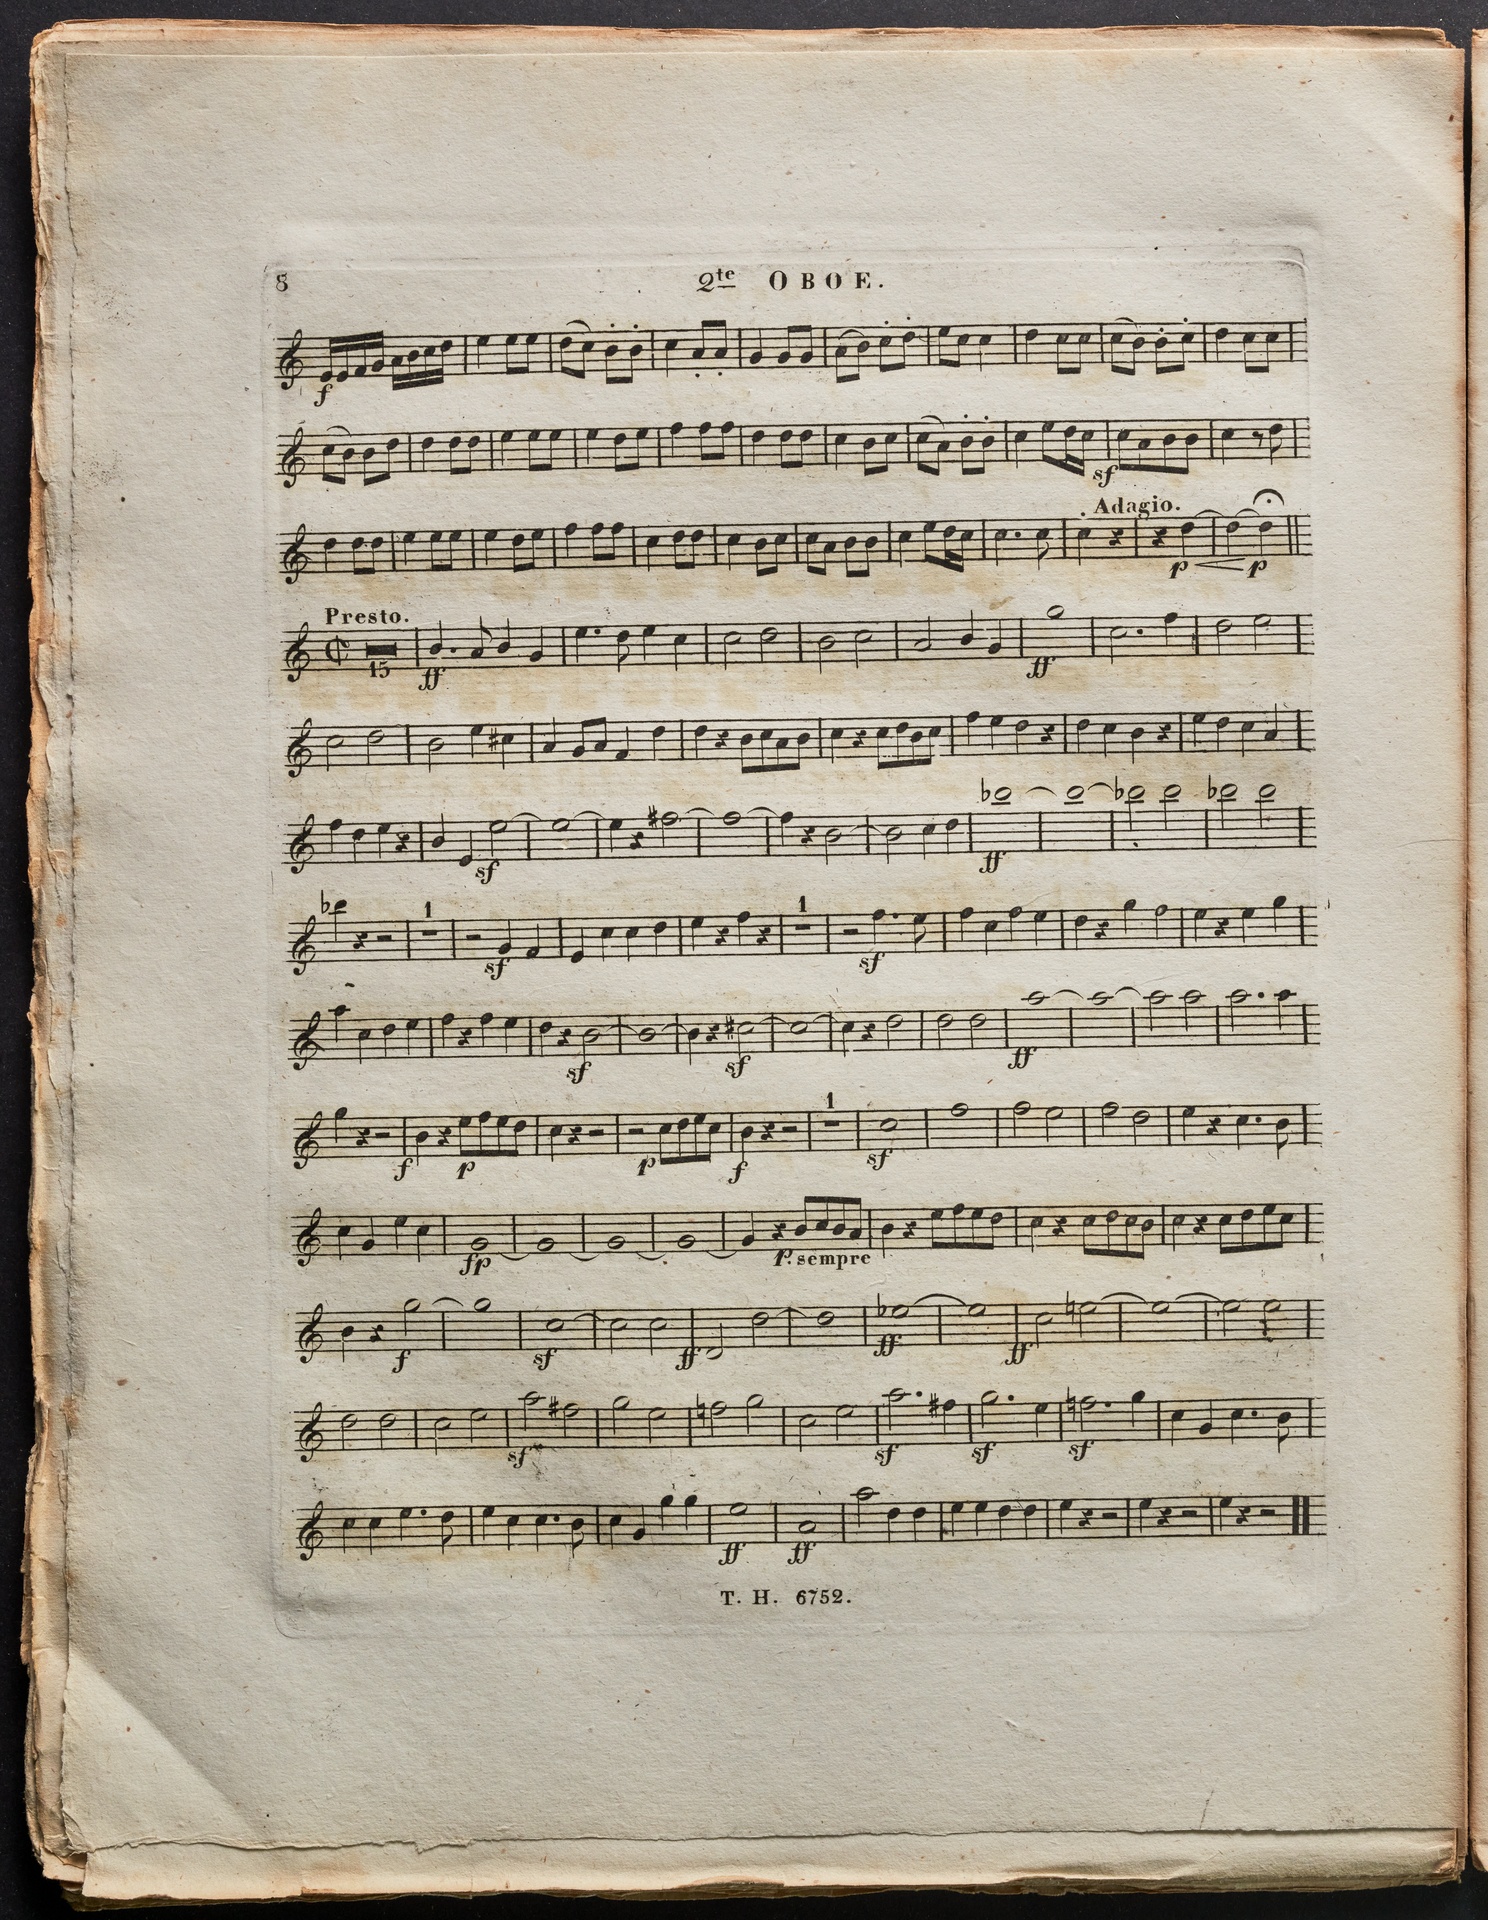 8
2te OBOE.
f
sf
Adagio.
p p
Presto.
15 ff ff
sf ff
1 1
sf sf
sf sf ff
1
f p p f sf
fp p. sempre
f sf ff ff ff
sf sf sf sf
ff ff
T. H. 6752.